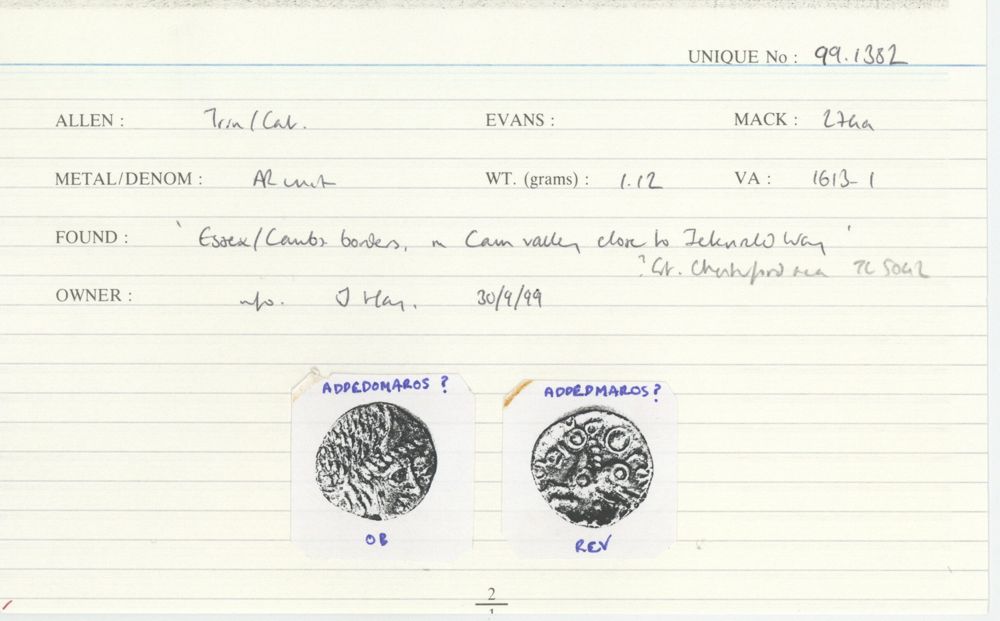 UNIQUE No : 99.1382
ALLEN : Trin/Cat. EVANS : MACK : 274a
METAL/DENOM : AR unit WT. (grams) : 1.12 VA : 1613-1
FOUND : ' Essex/Cambs borders, in Cam valley close to Icknield Way '
? Gt. Chesterford area TL 5042
OWNER : info. J May. 30/9/99
ADDEDOMAROS ? ADDEDMAROS ?
OB REV
2
1